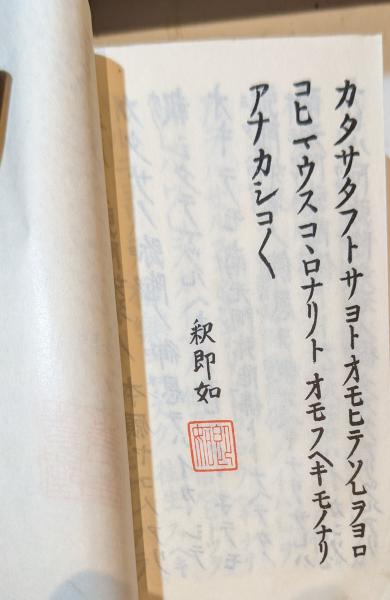 カタサタフトサヨトオモヒテソレヲヨロ
コヒマウスコヽロナリトオモフヘキモノナリ
アナカシコ〱
釈即如
即如